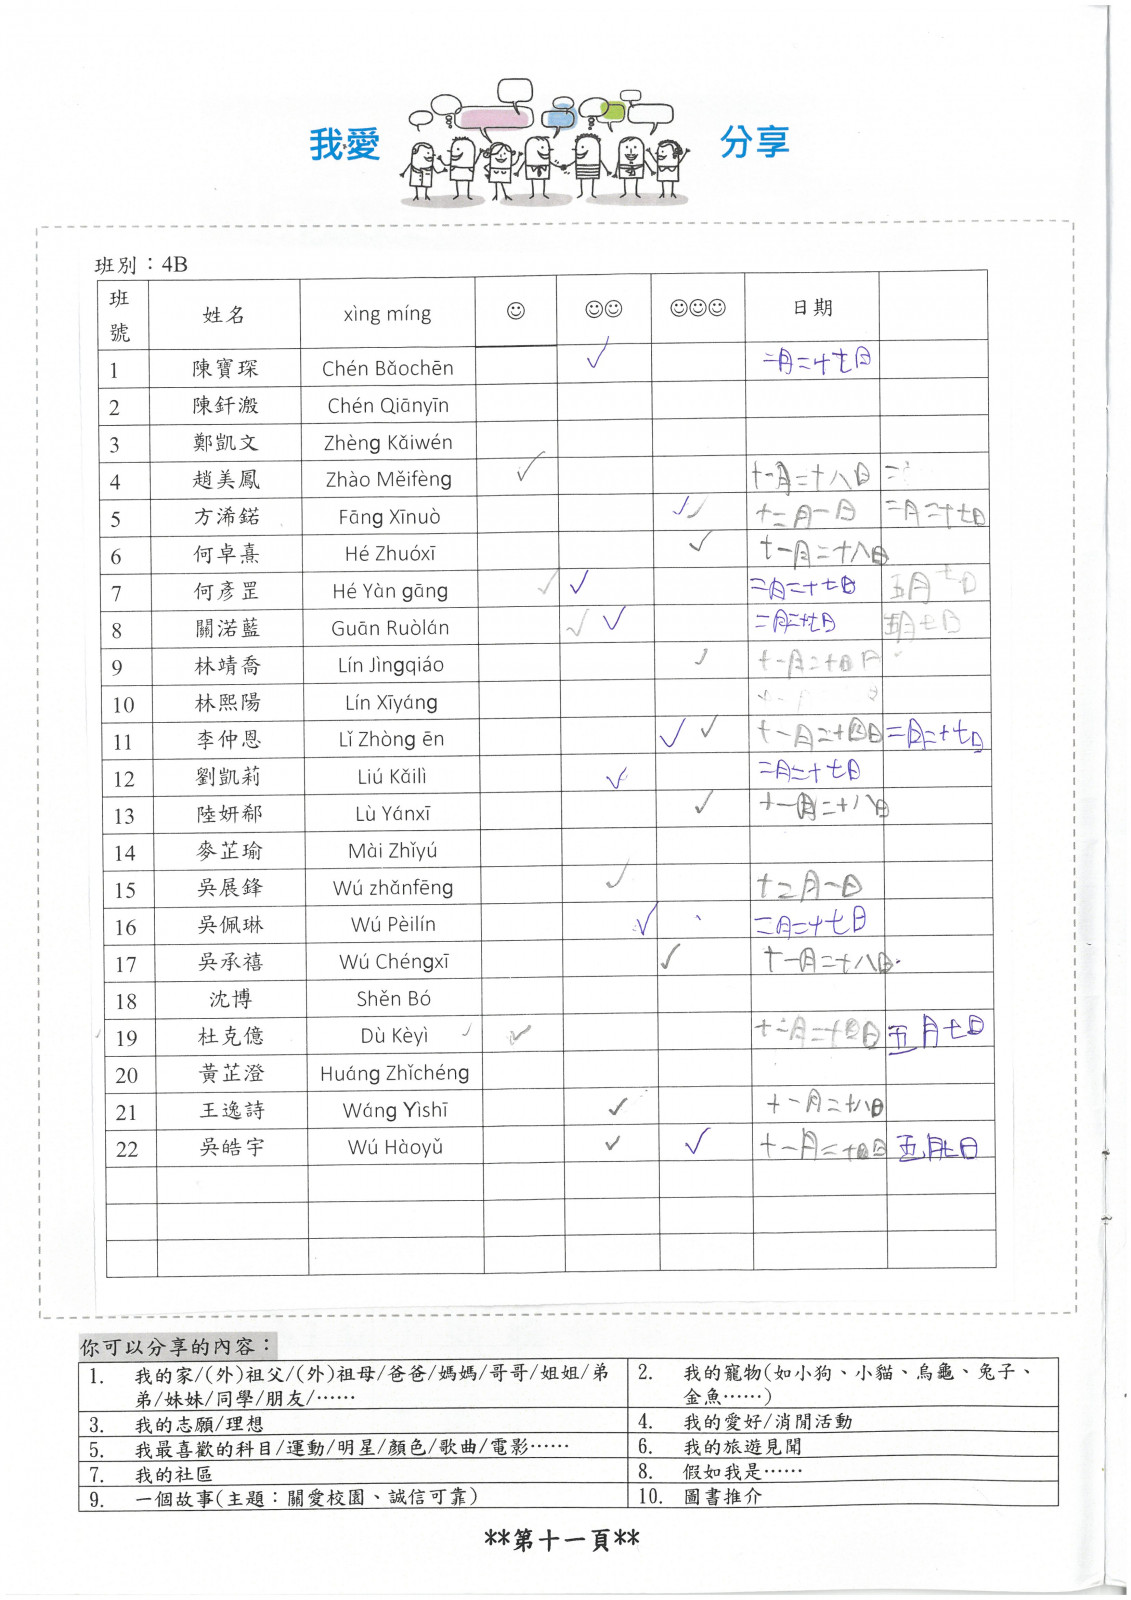 我愛 分享
班別：4B
班號 姓名 xìng míng ☺ ☺☺ ☺☺☺ 日期
1 陳寶琛 Chén Bǎochēn ✓ 二月二十七日
2 陳釬溵 Chén Qiānyīn
3 鄭凱文 Zhèng Kǎiwén
4 趙美鳳 Zhào Měifèng ✓ 十一月二十八日 二
5 方浠鍩 Fāng Xīnuò ✓✓ 十二月一日 二月二十七日
6 何卓熹 Hé Zhuóxī ✓ 十一月二十八日
7 何彥罡 Hé Yàn gāng ✓ ✓ 二月二十七日 五月七日
8 關渃藍 Guān Ruòlán ✓ ✓ 二月二十七日 五月七日
9 林靖喬 Lín Jìngqiáo ✓ 十一月二十四日
10 林熙陽 Lín Xīyáng
11 李仲恩 Lǐ Zhòng ēn ✓ ✓ 十一月二十四日 二月二十七日
12 劉凱莉 Liú Kǎilì ✓ 二月二十七日
13 陸妍郗 Lù Yánxī ✓ 十一月二十八日
14 麥芷瑜 Mài Zhǐyú
15 吳展鋒 Wú zhǎnfēng ✓ 十二月一日
16 吳佩琳 Wú Pèilín ✓ 二月二十七日
17 吳承禧 Wú Chéngxī ✓ 十一月二十八日
18 沈博 Shěn Bó
19 杜克億 Dù Kèyì ✓ 十二月二十四日 五月七日
20 黃芷澄 Huáng Zhǐchéng
21 王逸詩 Wáng Yìshī ✓ 十一月二十八日
22 吳皓宇 Wú Hàoyǔ ✓ ✓ 十一月二十四日 五月七日
你可以分享的內容：
1. 我的家/(外)祖父/(外)祖母/爸爸/媽媽/哥哥/姐姐/弟
弟/妹妹/同學/朋友/⋯⋯
2. 我的寵物(如小狗、小貓、烏龜、兔子、
金魚⋯⋯)
3. 我的志願/理想
4. 我的愛好/消閒活動
5. 我最喜歡的科目/運動/明星/顏色/歌曲/電影⋯⋯
6. 我的旅遊見聞
7. 我的社區
8. 假如我是⋯⋯
9. 一個故事(主題：關愛校園、誠信可靠)
10. 圖書推介
**第十一頁**